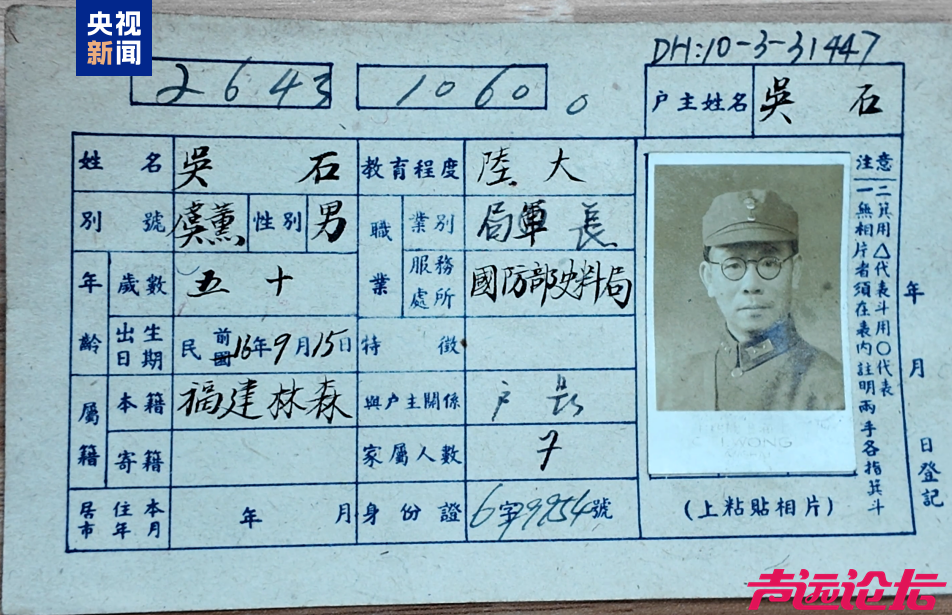 央视
新闻
DH:10-3-31447
2643 1060
戶主姓名 吳石
姓名 吳石 教育程度 陸大
別號 虞薰 性別 男 職業 業別 局軍長
年齡 歲數 五十 服務處所 國防部史料局
出生日期 民前國16年9月15日 特徵
屬籍 本籍 福建林森 與戶主關係 戶長
寄籍 家屬人數 7
居住本市年月 年 月 身份證 6字9954號
WONG
(上粘貼相片)
注意
一無相片者須在表內註明兩手各指箕斗
二箕用△代表斗用○代表
年月日登記
声远论坛